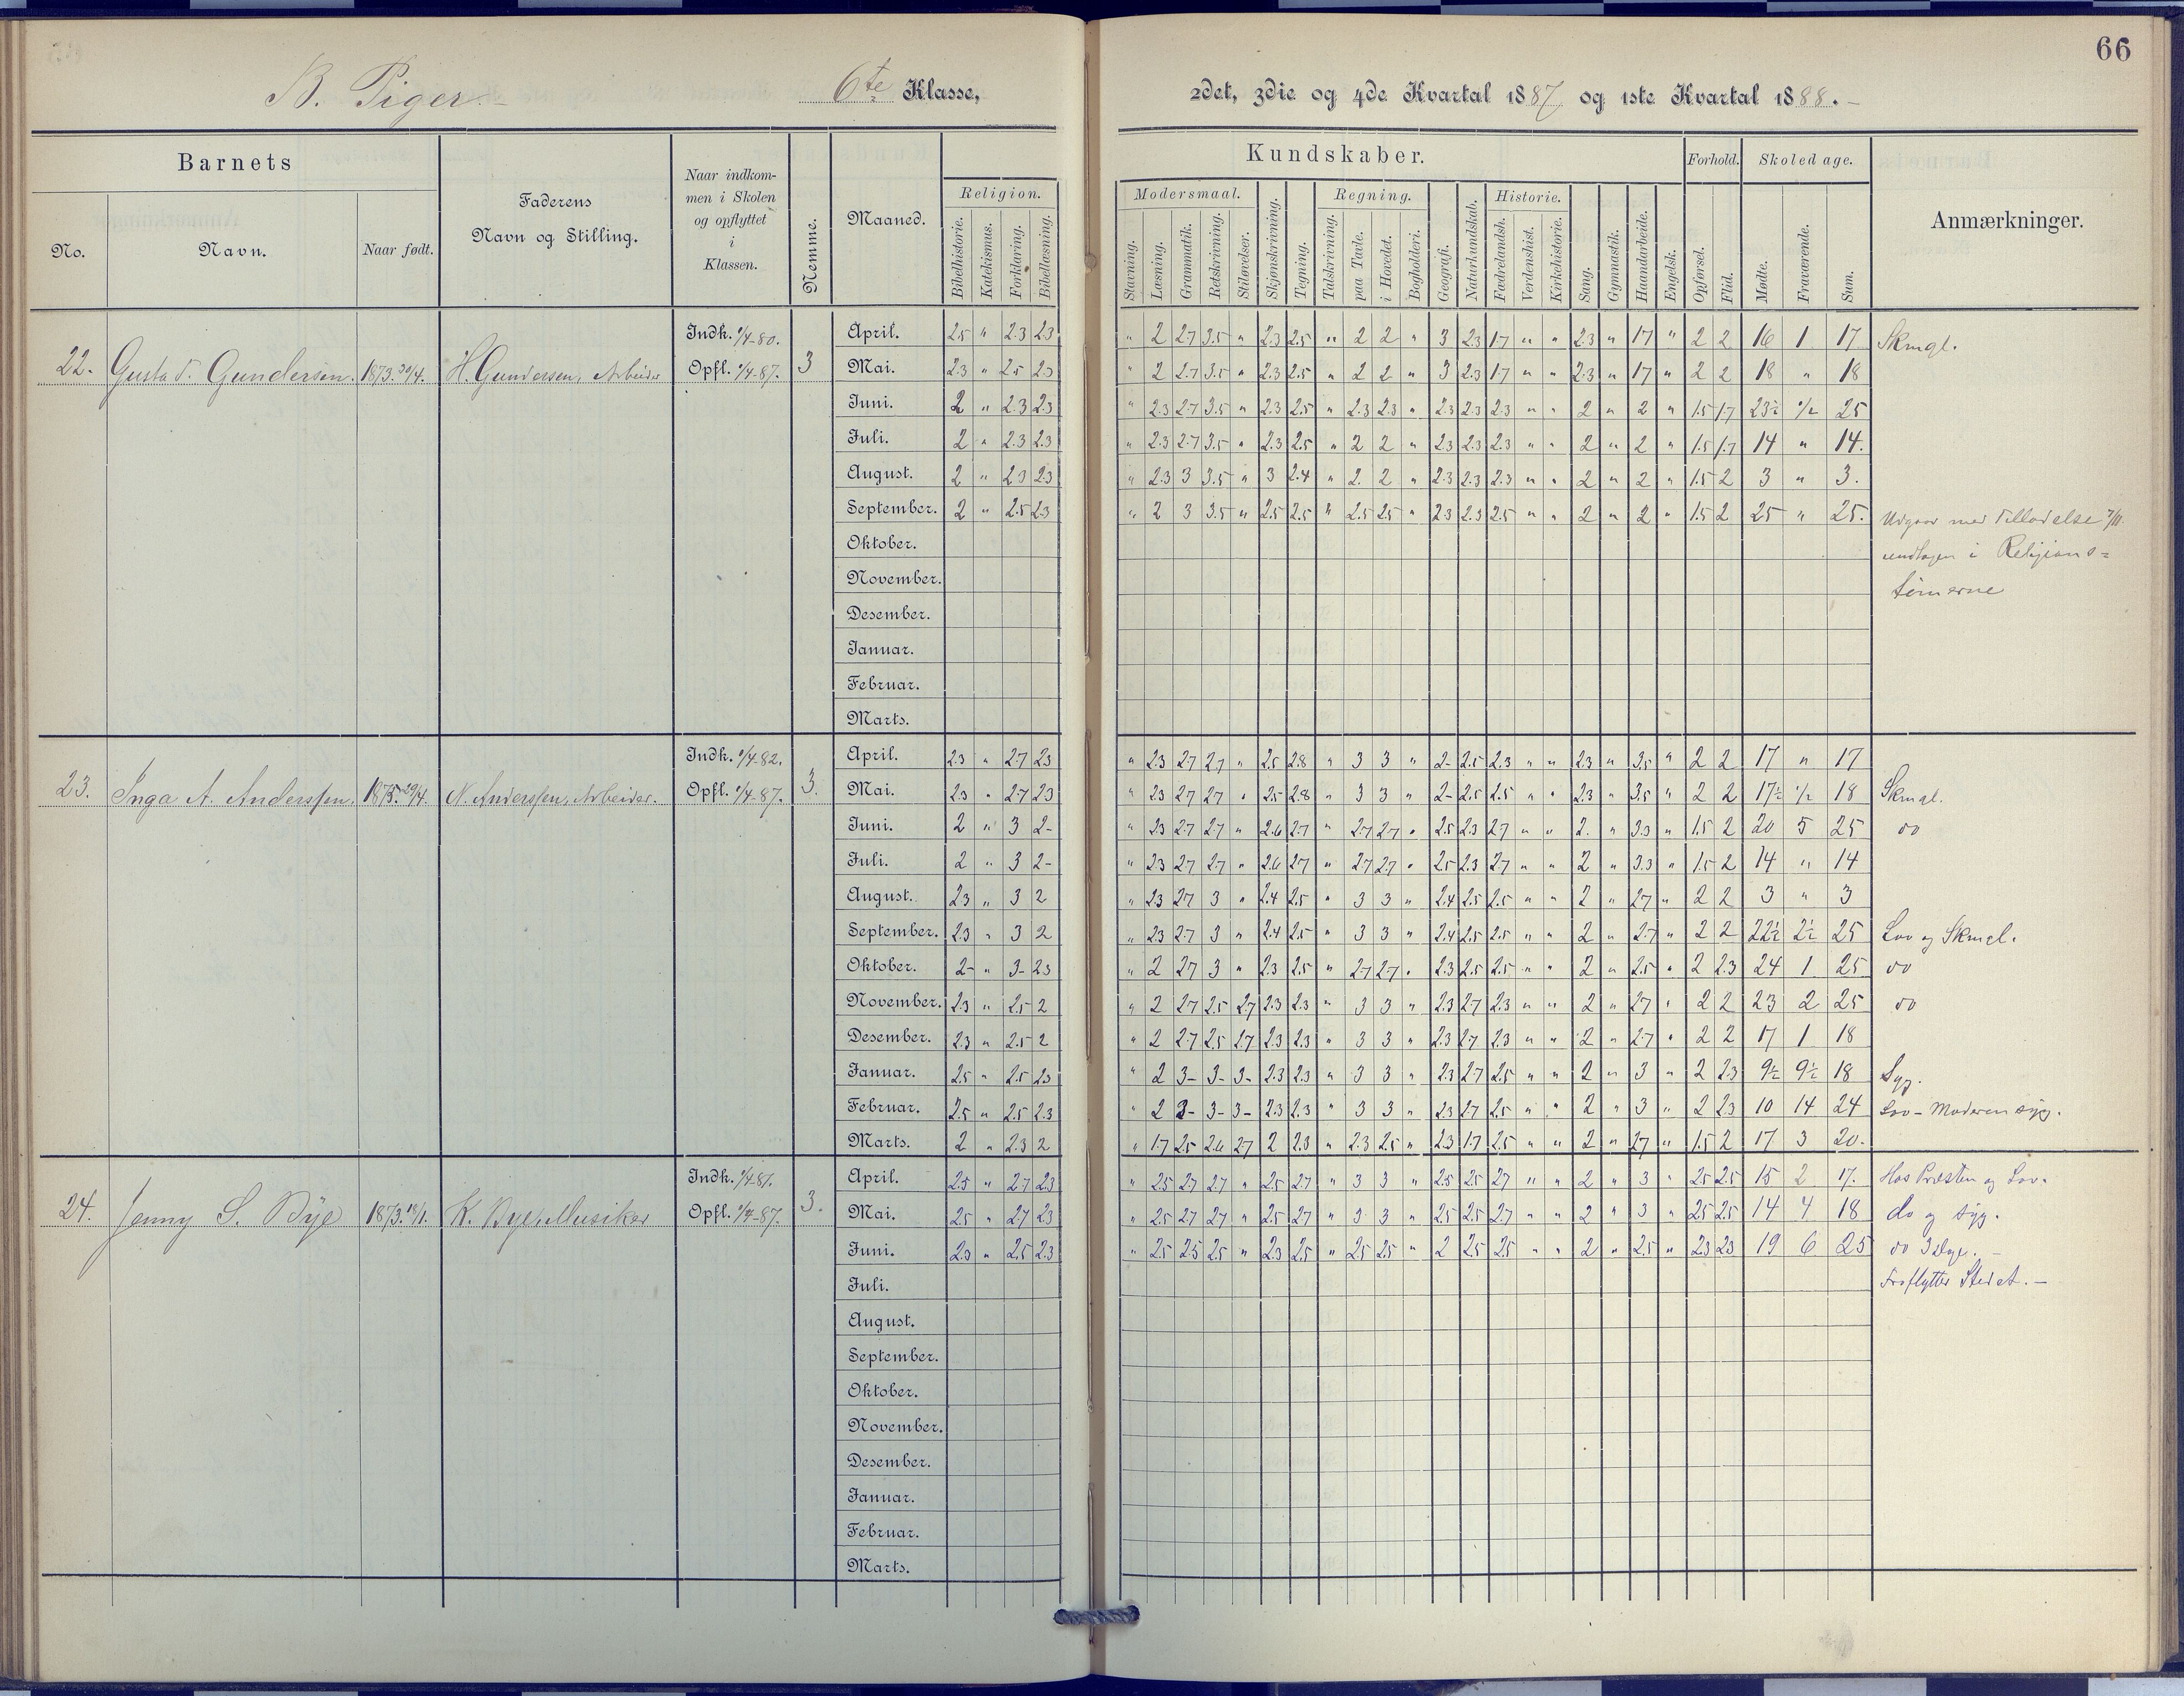 66
B. Piger. 6te Klasse, 2det, 3die og 4de Kvartal 1887 og 1ste Kvartal 1888.
Barnets
No. Navn. Naar født.
Faderens Navn og Stilling.
Naar indkommen i Skolen og opflyttet i Klassen.
Nemme.
Maaned.
Kundskaber. Forhold. Skoledage. Anmærkninger.
Religion. Modersmaal. Regning. Historie.
Bibelhistorie. Katekismus. Forklaring. Bibellæsning. Stavning. Læsning. Grammatik. Retskrivning. Stiløvelser. Skjønskrivning. Tegning. Talskrivning. paa Tavle. i Hovedet. Bogholderi. Geografi. Naturkundskab. Fædrelandsh. Verdenshist. Kirkehistorie. Sang. Gymnastik. Haandarbeide. Engelsk. Opførsel. Flid. Mødte. Fraværende. Sum.
22. Gusta T. Gundersen. 1873. 30/4. H. Gundersen, Arbeider
Indk. 1/4-80.
Opfl. 1/4-87. 3
April. 2.5 " 2.3 2.3 " 2 2.7 3.5 " 2.3 2.5 " 2 2 " 3 2.3 1.7 " " 2.3 " 1.7 " 2 2 16 1 17 Skmgl.
Mai. 2.3 " 2.5 2.3 " 2 2.7 3.5 " 2.3 2.5 " 2 2 " 3 2.3 1.7 " " 2.3 " 1.7 " 2 2 18 " 18
Juni. 2 " 2.3 2.3 " 2.3 2.7 3.5 " 2.3 2.5 " 2.3 2.3 " 2.3 2.3 2.3 " " 2 " 2 " 1.5 1.7 23½ ½ 25
Juli. 2 " 2.3 2.3 " 2.3 2.7 3.5 " 2.3 2.5 " 2 2 " 2.3 2.3 2.3 " " 2 " 2 " 1.5 1.7 14 " 14.
August. 2 " 2.3 2.3 " 2.3 3 3.5 " 3 2.4 " 2. 2 " 2.3 2.3 2.3 " " 2 " 2 " 1.5 2 3 " 3.
September. 2 " 2.5 2.3 " 2 3 3.5 " 2.5 2.5 " 2.5 2.5 " 2.3 2.3 2.5 " " 2 " 2 " 1.5 2 25 " 25. Udgaar med Tilladelse 7/11
Oktober. undtagen i Religions=
November. timerne
Desember.
Januar.
Februar.
Marts.
23. Inga A. Anderssen. 1875. 29/4. N. Anderssen, Arbeider.
Indk. 1/4-82.
Opfl. 1/4-87. 3.
April. 2.3 " 2.7 2.3 " 2.3 2.7 2.7 " 2.5 2.8 " 3 3 " 2- 2.5 2.3 " " 2.3 " 3.5 " 2 2 17 " 17
Mai. 2.3 " 2.7 2.3 " 2.3 2.7 2.7 " 2.5 2.8 " 3 3 " 2- 2.5 2.5 " " 2.3 " 3.5 " 2 2 17½ ½ 18 Skmgl.
Juni. 2 " 3 2- " 2.3 2.7 2.7 " 2.6 2.7 " 2.7 2.7 " 2.5 2.3 2.7 " " 2. " 3.3 " 1.5 2 20 5 25 do
Juli. 2 " 3 2- " 2.3 2.7 2.7 " 2.6 2.7 " 2.7 2.7 " 2.5 2.3 2.7 " " 2 " 3.3 " 1.5 2 14 " 14
August. 2.3 " 3 2 " 2.3 2.7 3 " 2.4 2.5 " 3 3 " 2.4 2.5 2.5 " " 2 " 2.7 " 2 2 3 " 3
September. 2.3 " 3 2 " 2.3 2.7 3 " 2.4 2.5 " 3 3 " 2.4 2.5 2.5 " " 2 " 2.7 " 2 2 22½ 2½ 25 Lov og Skmgl.
Oktober. 2- " 3- 2.3 " 2 2.7 3 " 2.3 2.5 " 2.7 2.7 " 2.3 2.5 2.5 " " 2 " 2.5 " 2 2.3 24 1 25 do
November. 2.3 " 2.5 2 " 2 2.7 2.5 2.7 2.3 2.3 " 3 3 " 2.3 2.7 2.3 " " 2 " 2.7 " 2 2 23 2 25 do
Desember. 2.3 " 2.5 2 " 2 2.7 2.5 2.7 2.3 2.3 " 3 3 " 2.3 2.7 2.3 " " 2 " 2.7 " 2 2 17 1 18
Januar. 2.5 " 2.5 2.3 " 2 3- 3- 3- 2.3 2.3 " 3 3 " 2.3 2.7 2.5 " " 2 " 3 " 2 2.3 9½ 9½ 18 Syg.
Februar. 2.5 " 2.5 2.3 " 2 3- 3- 3- 2.3 2.3 " 3 3 " 2.3 2.7 2.5 " " 2 " 3 " 2 2.3 10 14 24 Lov - Moderen syg.
Marts. 2 " 2.3 2 " 1.7 2.5 2.6 2.7 2 2.3 " 2.3 2.5 " 2.3 1.7 2.5 " " 2 " 2.7 " 1.5 2 17 3 20.
24. Jenny S. Bye 1873. 18/1. K. Bye, Musiker
Indk. 1/4-81.
Opfl. 1/4-87. 3.
April. 2.5 " 2.7 2.3 " 2.5 2.7 2.7 " 2.5 2.7 " 3 3 " 2.5 2.5 2.7 " " 2 " 3 " 2.5 2.5 15 2 17. Hos Præsten og Lov.
Mai. 2.5 " 2.7 2.3 " 2.5 2.7 2.7 " 2.5 2.7 " 3 3 " 2.5 2.5 2.7 " " 2 " 3 " 2.5 2.5 14 4 18 do og syg.
Juni. 2.3 " 2.5 2.3 " 2.5 2.5 2.5 " 2.3 2.5 " 2.5 2.5 " 2 2.5 2.5 " " 2 " 2.5 " 2.3 2.3 19 6 25 do 3 Dage. -
Juli. Fraflyttet Stedet. -
August.
September.
Oktober.
November.
Desember.
Januar.
Februar.
Marts.